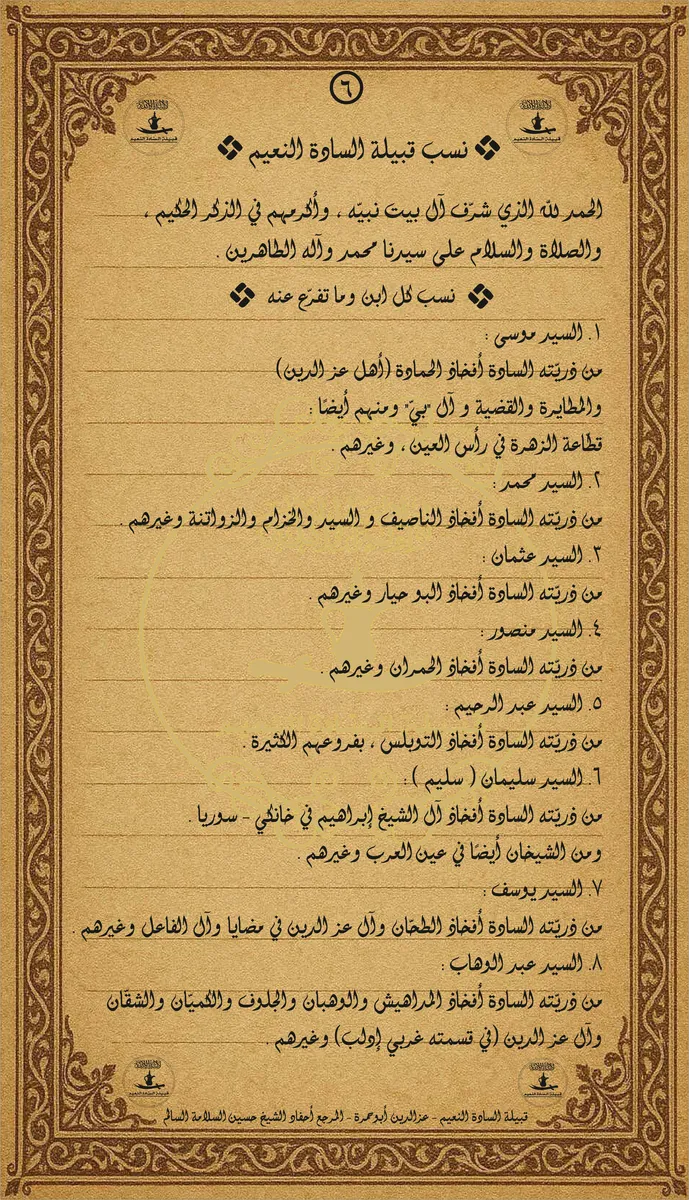 ٦
نسب قبيلة السادة النعيم
الحمد لله الذي شرّف آل بيت نبيّه ، وأكرمهم في الذكر الحكيم ،
والصلاة والسلام على سيدنا محمد وآله الطاهرين .
نسب كل ابن وما تفرّع عنه
١. السيد موسى :
من ذريّته السادة أفخاذ الحمادة (أهل عز الدين)
والمطايرة والقضية و آل "بيّ" ومنهم أيضًا :
قطّاعة الزهرة في رأس العين ، وغيرهم .
٢. السيد محمد :
من ذريّته السادة أفخاذ الناصيف و السيد والخزام والزواتنة وغيرهم .
٣. السيد عثمان :
من ذريّته السادة أفخاذ البو حيار وغيرهم .
٤. السيد منصور :
من ذريّته السادة أفخاذ الحمران وغيرهم .
٥. السيد عبد الرحيم :
من ذريّته السادة أفخاذ التوبلس ، بفروعهم الكثيرة .
٦. السيد سليمان ( سليم ) :
من ذريّته السادة أفخاذ آل الشيخ إبراهيم في خانكي - سوريا .
ومن الشيخان أيضًا في عين العرب وغيرهم .
٧. السيد يوسف :
من ذريّته السادة أفخاذ الطحّان وآل عز الدين في مضايا وآل الفاعل وغيرهم .
٨. السيد عبد الوهاب :
من ذريّته السادة أفخاذ المداهيش والوهبان والجلوف والكميّان والشقّان
وآل عز الدين (في قسمته غربي إدلب) وغيرهم .
قبيلة السادة النعيم - عزالدين أبوحمرة - المرجع أحفاد الشيخ حسين السلامة السالم